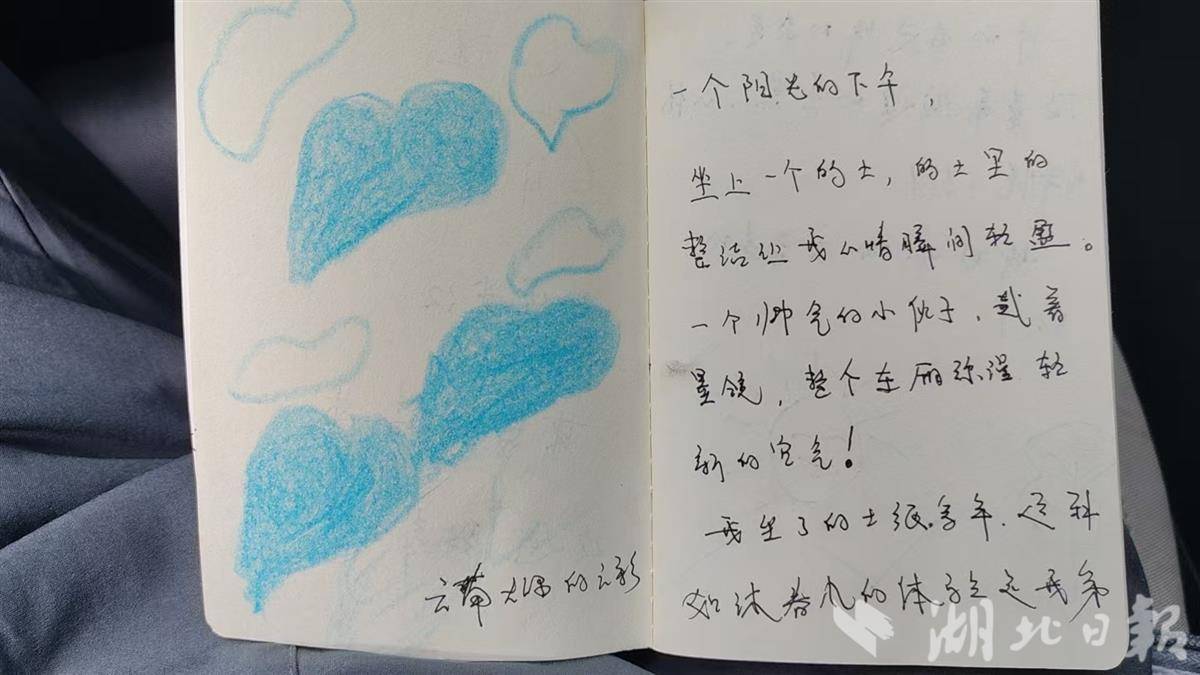 云南大理的云彩
一个阳光的下午，
坐上一个的士，的士里的
整洁让我心情瞬间轻盈。
一个帅气的小伙子，戴着
墨镜，整个车厢弥漫轻
新的空气！
我坐了的士很多年，这种
如沐春风的体验是我第
湖北日報